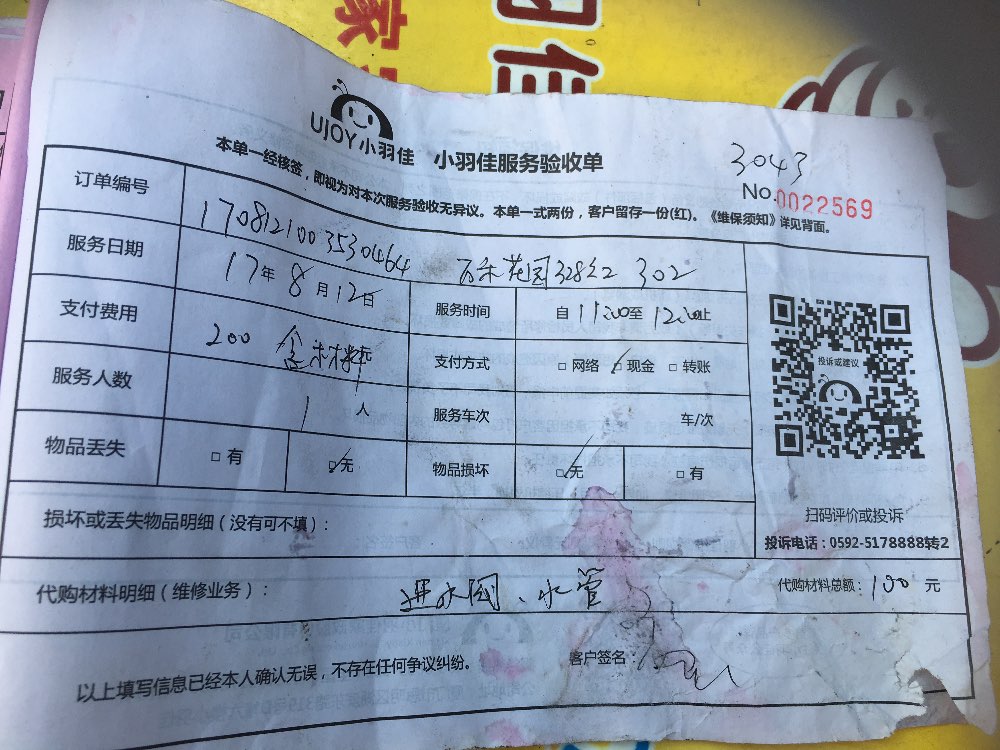 UJOY小羽佳 小羽佳服务验收单
3043
No.0022569
本单一经核签，即视为对本次服务验收无异议。本单一式两份，客户留存一份(红)。《维保须知》详见背面。
订单编号 1708121003530464
服务日期 17年8月12日 万禾花园32802 302
服务时间 自11:00至12:00止
支付费用 200 含材料
支付方式 □网络 ☑现金 □转账
服务人数 1人
服务车次 车/次
物品丢失 □有 ☑无
物品损坏 ☑无 □有
损坏或丢失物品明细（没有可不填）：
投诉或建议
扫码评价或投诉
投诉电话：0592-5178888转2
代购材料明细（维修业务）： 进水阀、水管
代购材料总额：100元
以上填写信息已经本人确认无误，不存在任何争议纠纷。
客户签名：